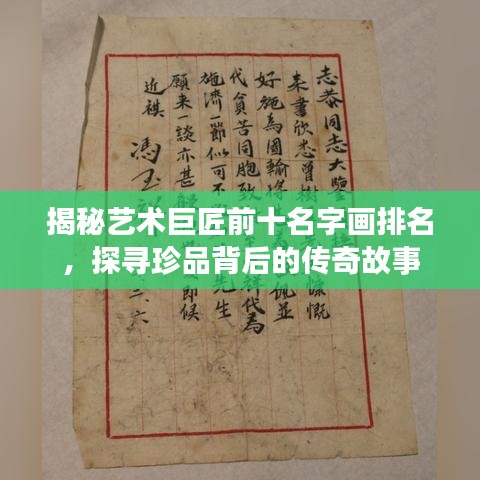 志恭同志大鑒
来書欣悉曾樹慷慨
好施為國輸佩並
代貧苦同胞致代為
施濟一節似可不先生
願来一談亦甚即候
近祺 馮玉三六
揭秘艺术巨匠前十名字画排名
，探寻珍品背后的传奇故事